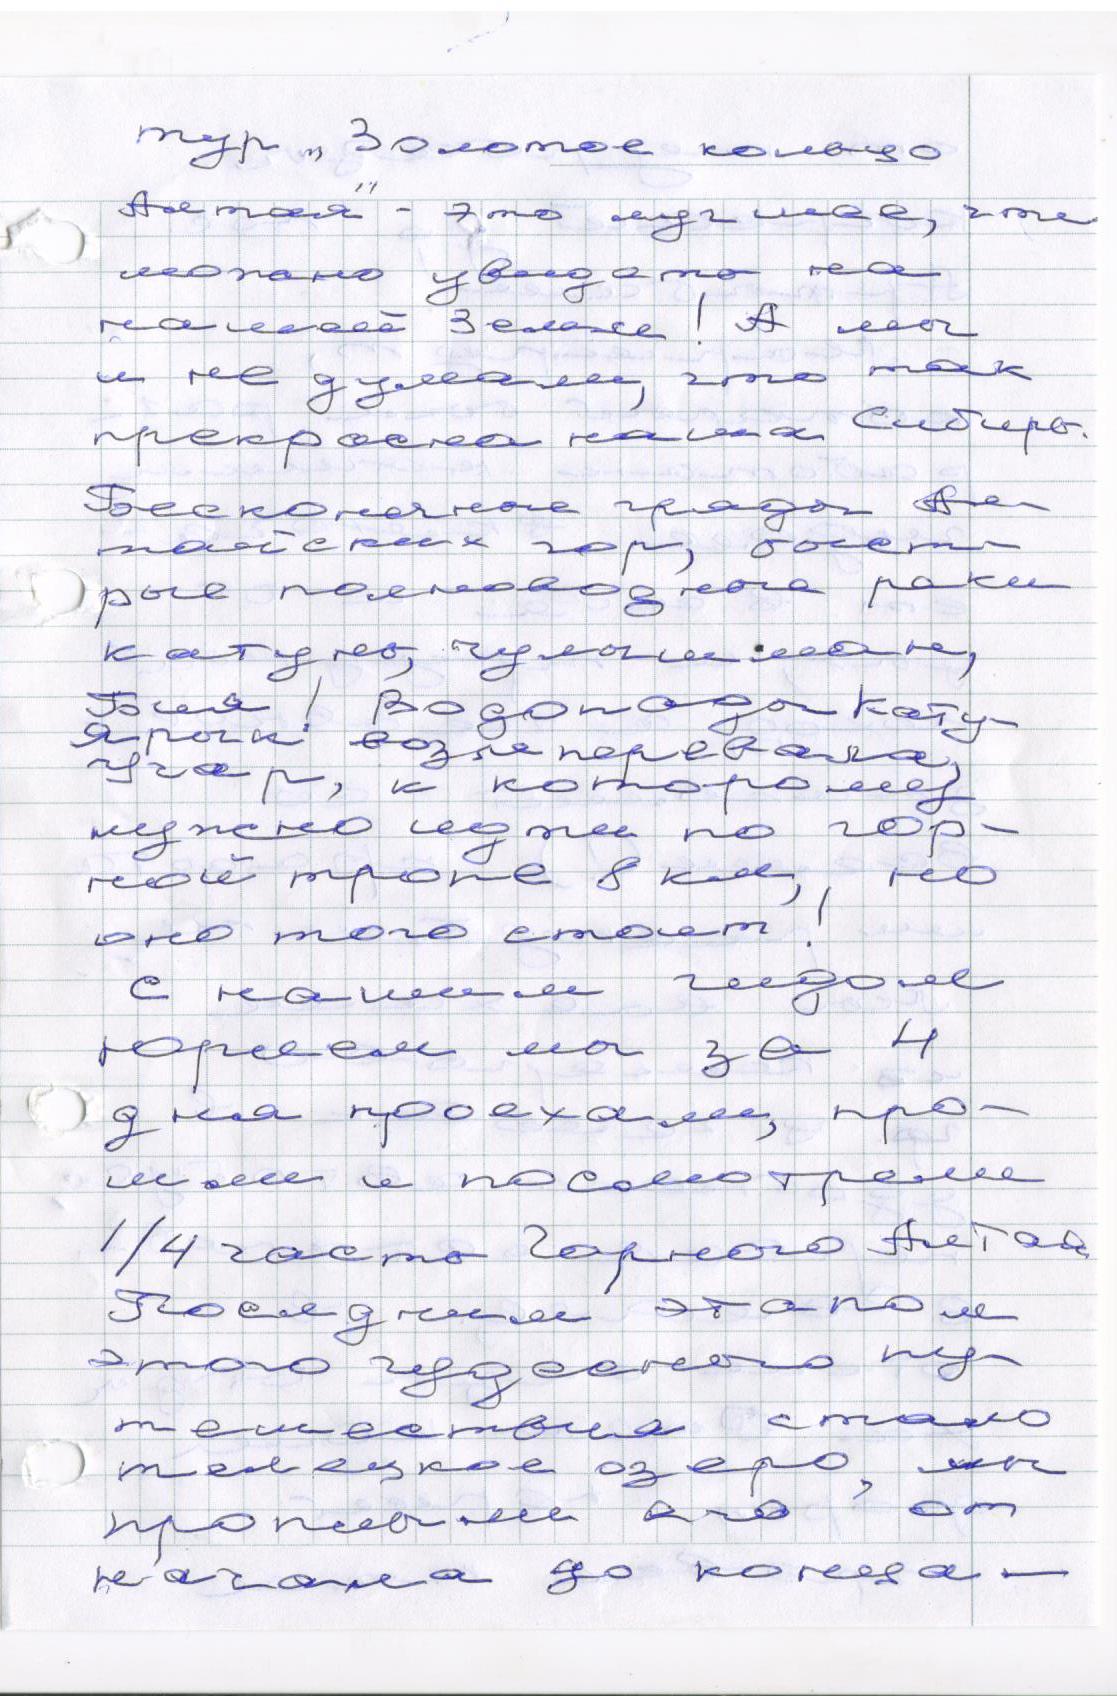 тур „Золотое кольцо
Алтая" - это лучшее, что
можно увидеть на
нашей Земле! А мы
и не думали, что так
прекрасна наша Сибирь.
Бесконечные гряды Ал-
тайских гор, быст-
рые полноводные реки
Катунь, Чулышман,
Бия! Водопады Кату-
Ярык возле перевала,
Учар, к которому
нужно идти по гор-
ной тропе 8 км, но
оно того стоит!
С нашим гидом
Юрием мы за 4
дня проехали, про-
шли и посмотрели
1/4 часть Горного Алтая
Последним этапом
этого чудесного пу-
тешествия стало
телецкое озеро, мы
проплыли его от
начала до конца -